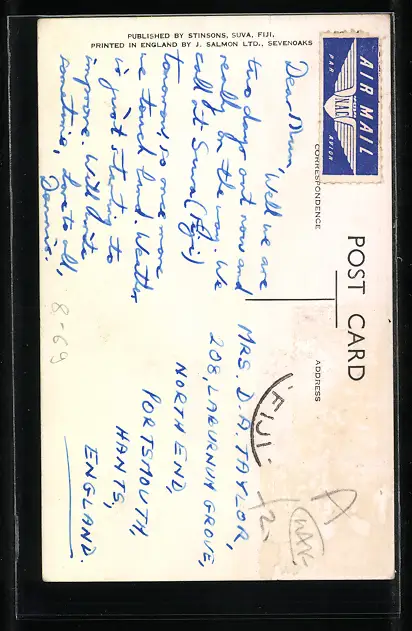 PUBLISHED BY STINSONS, SUVA, FIJI,
PRINTED IN ENGLAND BY J. SALMON LTD., SEVENOAKS
POST CARD
CORRESPONDENCE
ADDRESS
AIR MAIL
PAR AVION
NAC
Dear Mum, Well we are
two days out now and
really on the way. We
call at Suva (Fiji)
tomorrow, so once more
we touch land. Weather
is just starting to
improve. Will write
sometime, Love to all,
Dennis.
8-69
MRS. D. A. TAYLOR,
208, LABURNUM GROVE,
NORTH END,
PORTSMOUTH,
HANTS,
ENGLAND.
FIJI